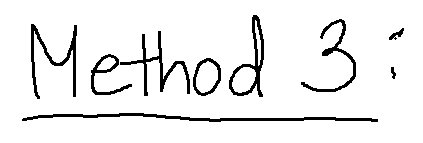 Method 3: